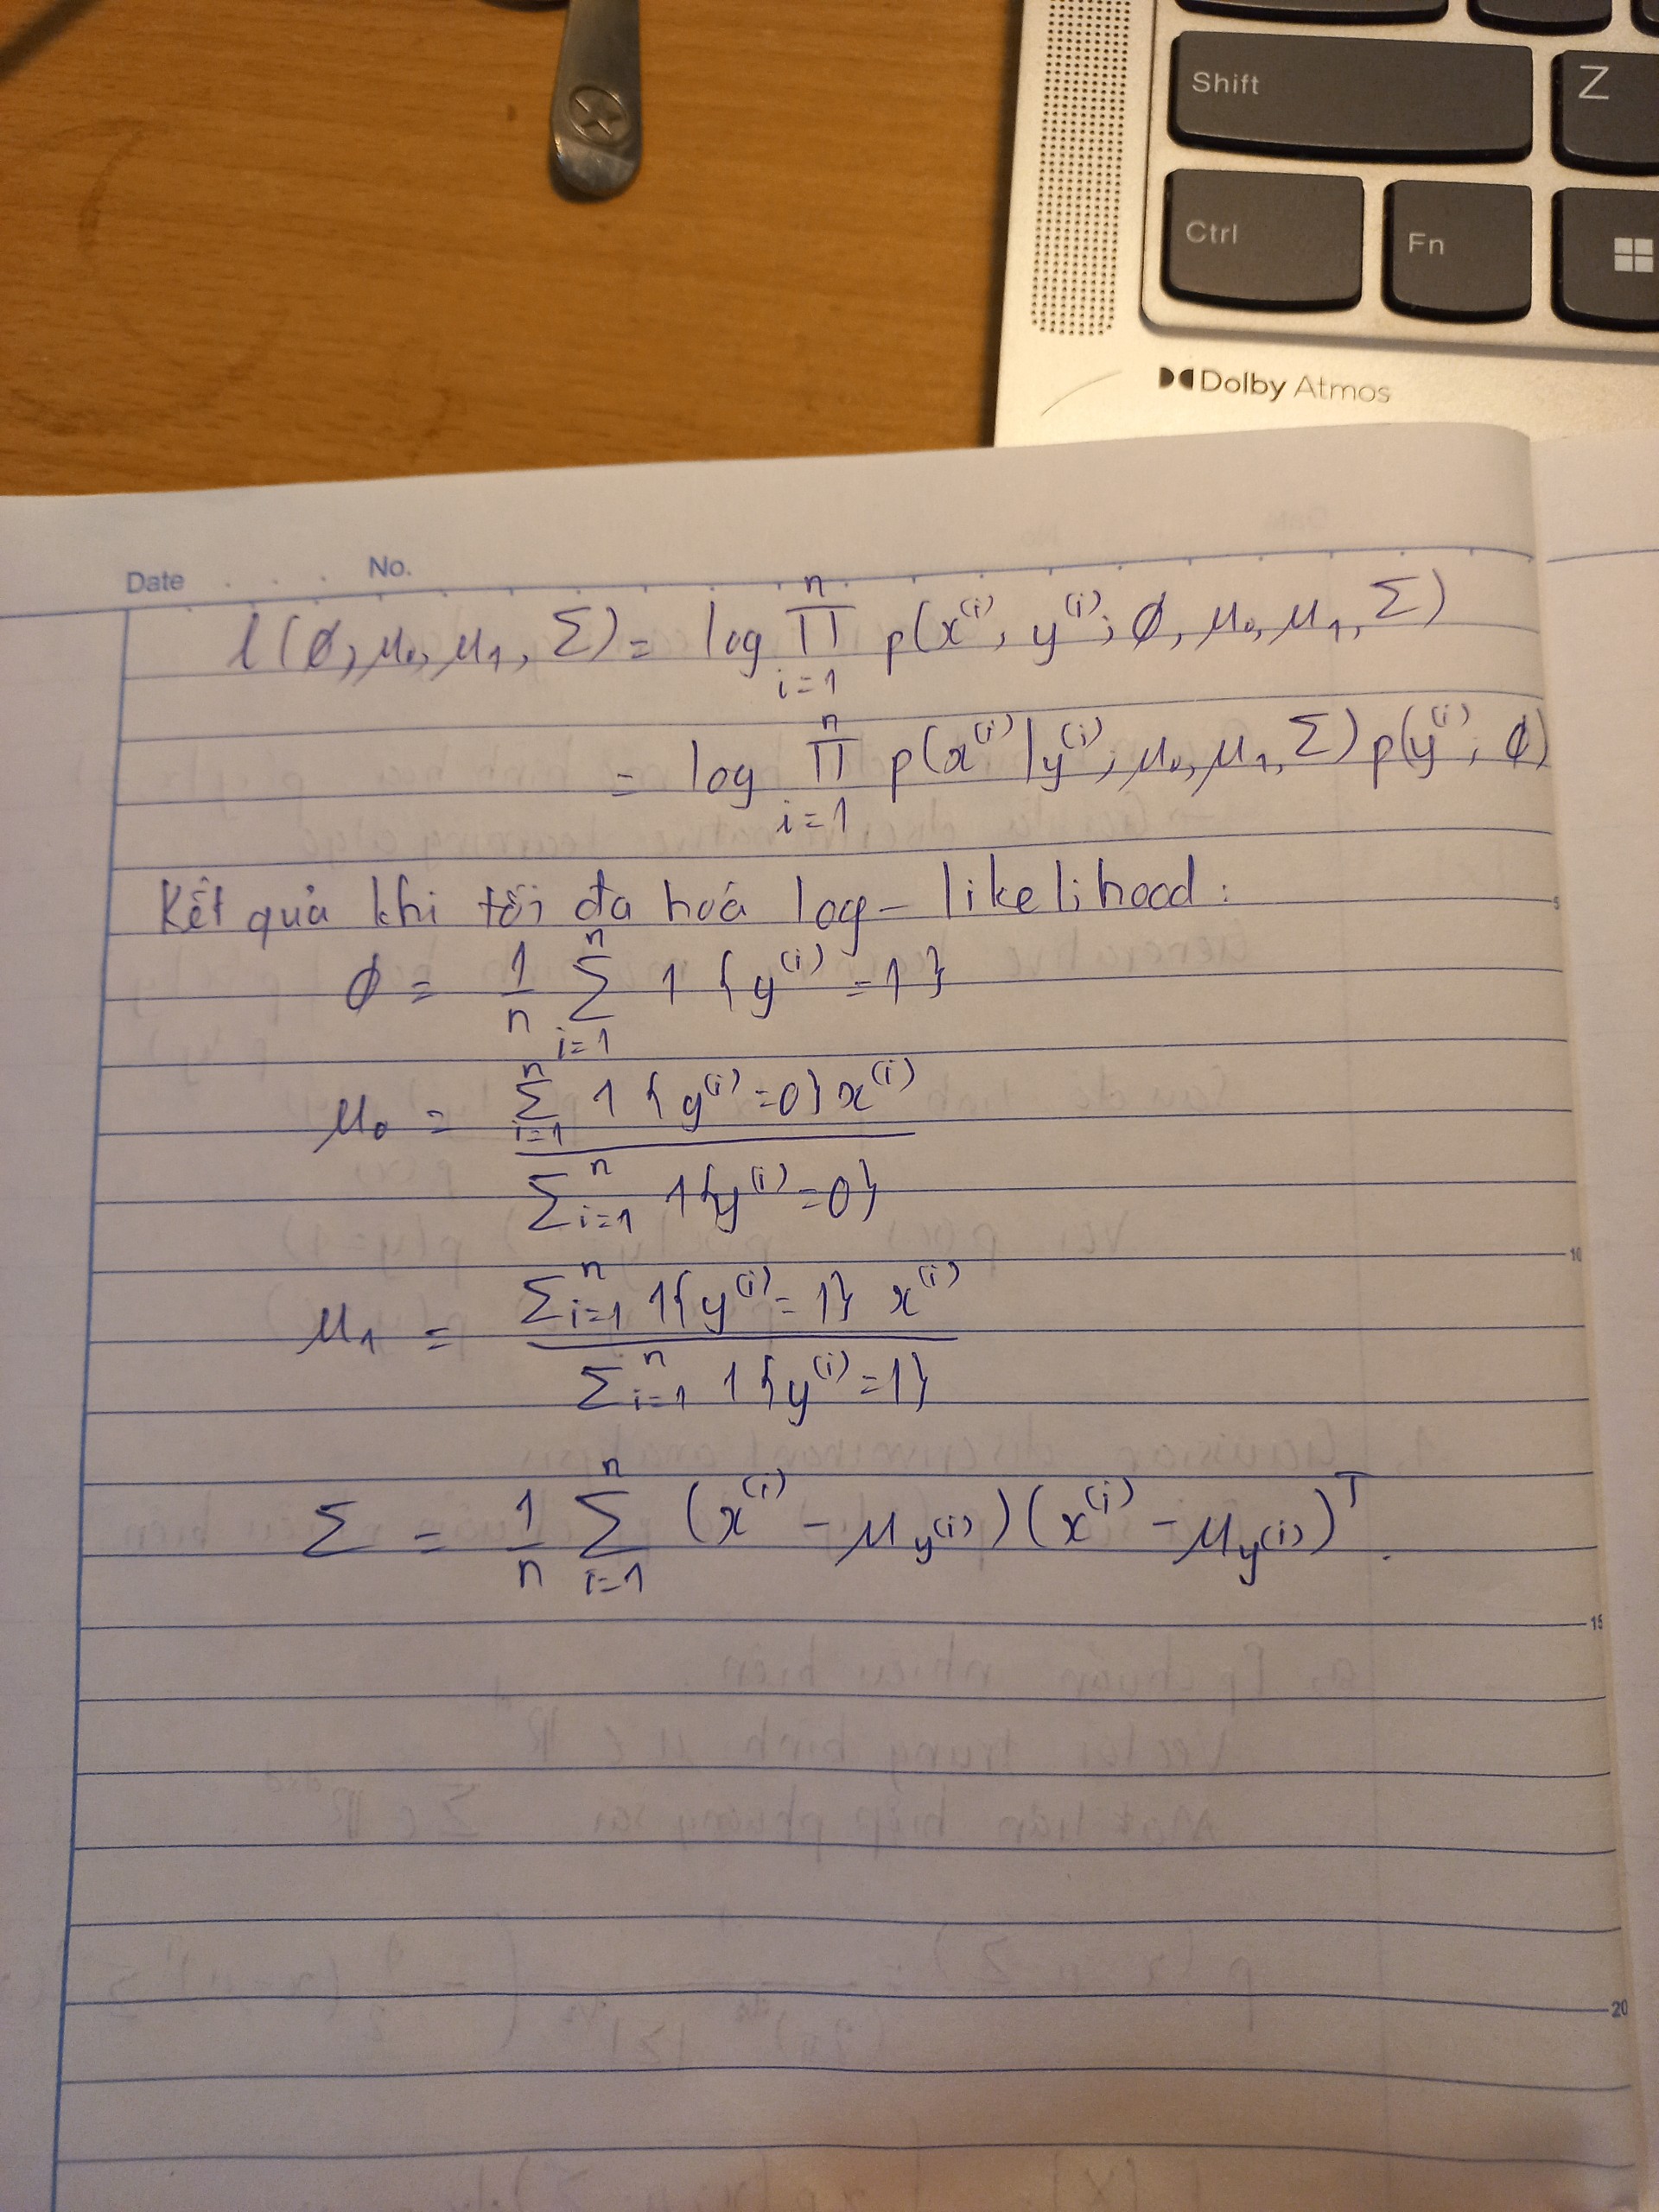 Shift
Z
Ctrl
Fn
Dolby Atmos
Date
No.
l(ϕ, μ₀, μ₁, Σ) = log ∏_{i=1}^{n} p(x^{(i)}, y^{(i)}; ϕ, μ₀, μ₁, Σ)
= log ∏_{i=1}^{n} p(x^{(i)} | y^{(i)}; μ₀, μ₁, Σ) p(y^{(i)}; ϕ)
Kết quả khi tối đa hoá log-likelihood:
ϕ = \frac{1}{n} ∑_{i=1}^{n} 1{y^{(i)} = 1}
μ₀ = \frac{∑_{i=1}^{n} 1{y^{(i)} = 0} x^{(i)}}{∑_{i=1}^{n} 1{y^{(i)} = 0}}
μ₁ = \frac{∑_{i=1}^{n} 1{y^{(i)} = 1} x^{(i)}}{∑_{i=1}^{n} 1{y^{(i)} = 1}}
Σ = \frac{1}{n} ∑_{i=1}^{n} (x^{(i)} - μ_{y^{(i)}})(x^{(i)} - μ_{y^{(i)}})^T.
5
10
15
20